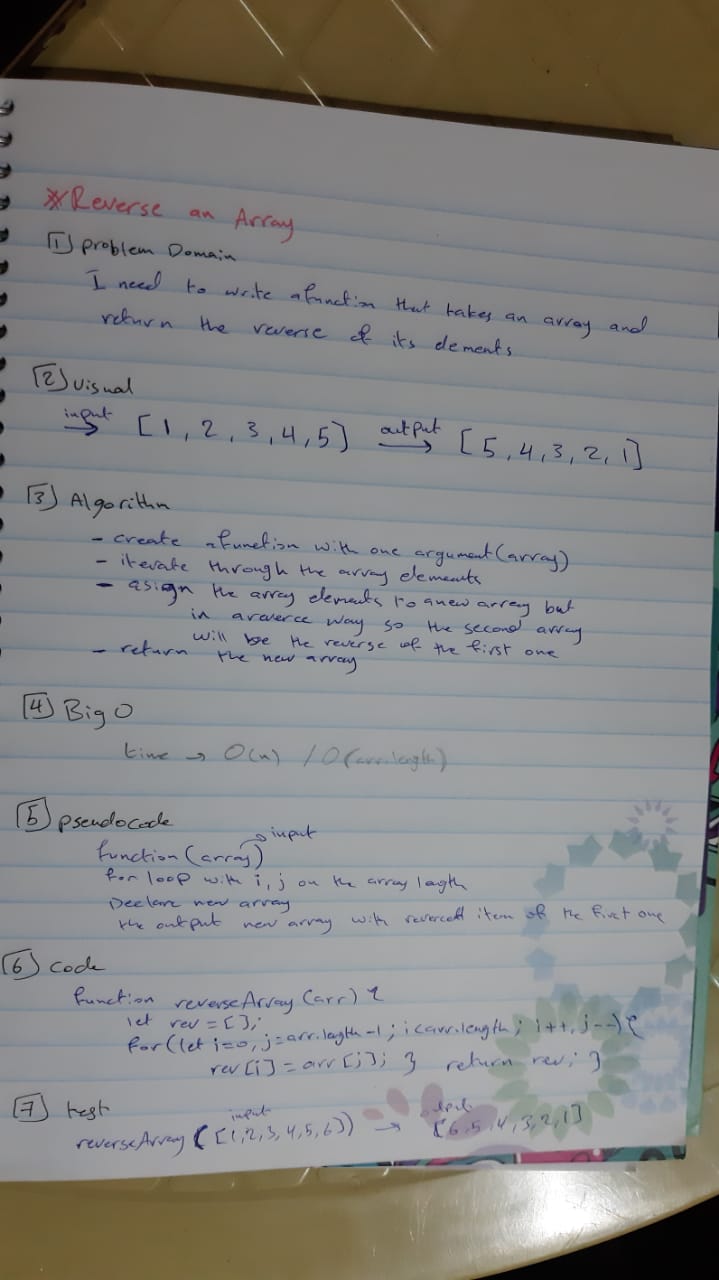 *Reverse an Array
[1] problem Domain
I need to write afunction that takes an array and
return the reverse of its elements
[2] visual
input → [1, 2, 3, 4, 5] output → [5, 4, 3, 2, 1]
[3] Algorithm
- create afunction with one argument (array)
- iterate through the array elements
- asign the array elements to anew array but
in areverce way so the second array
will be the reverse of the first one
- return the new array
[4] Big O
time → O(n) / O(arr.length)
[5] pseudocode
function (array) → input
for loop with i, j on the array
Declare new array
the output new array with item of the first one
[6] code
function reverseArray (arr) {
let rev = [];
for (let i=0, j=arr.length-1; i<arr.length; i++, j--) {
rev [i] = arr [j]; } return rev; }
[7] test
input output
reverseArray ([1,2,3,4,5,6]) → [6,5,4,3,2,1]